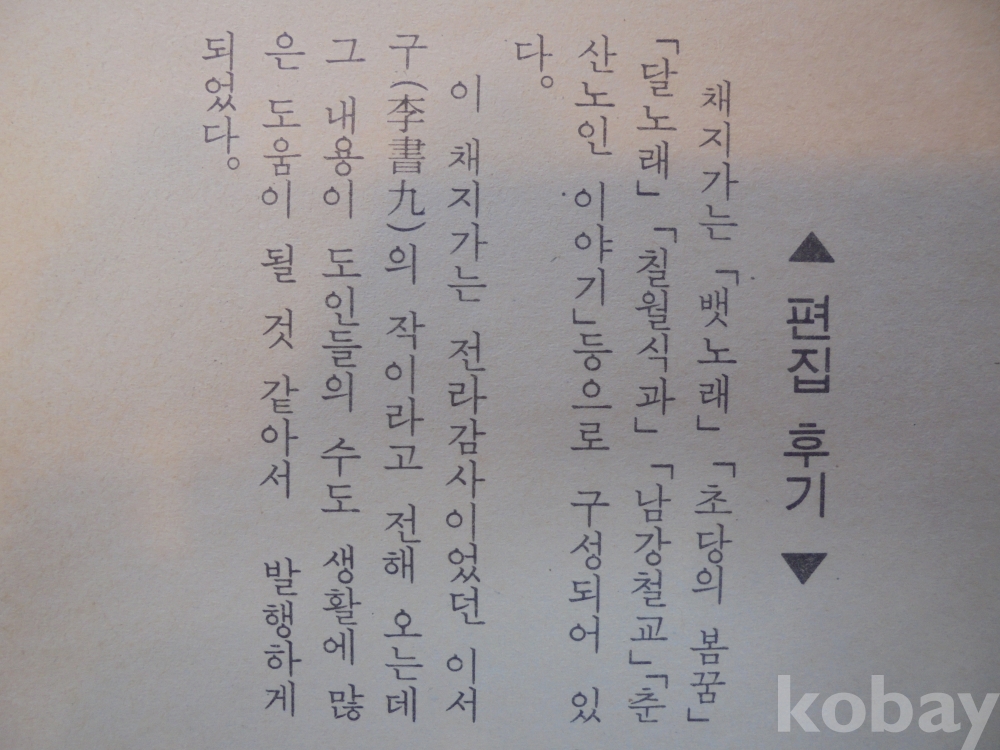 ▲ 편집 후기 ▼
채지가는 「뱃노래」 「초당의 봄꿈」
「달노래」 「칠월식과」 「남강철교」 「춘
산노인 이야기」 등으로 구성되어 있
다.
이 채지가는 전라감사이었던 이서
구(李書九)의 작이라고 전해 오는데
그 내용이 도인들의 수도 생활에 많
은 도움이 될 것 같아서 발행하게
되었다.
kobay